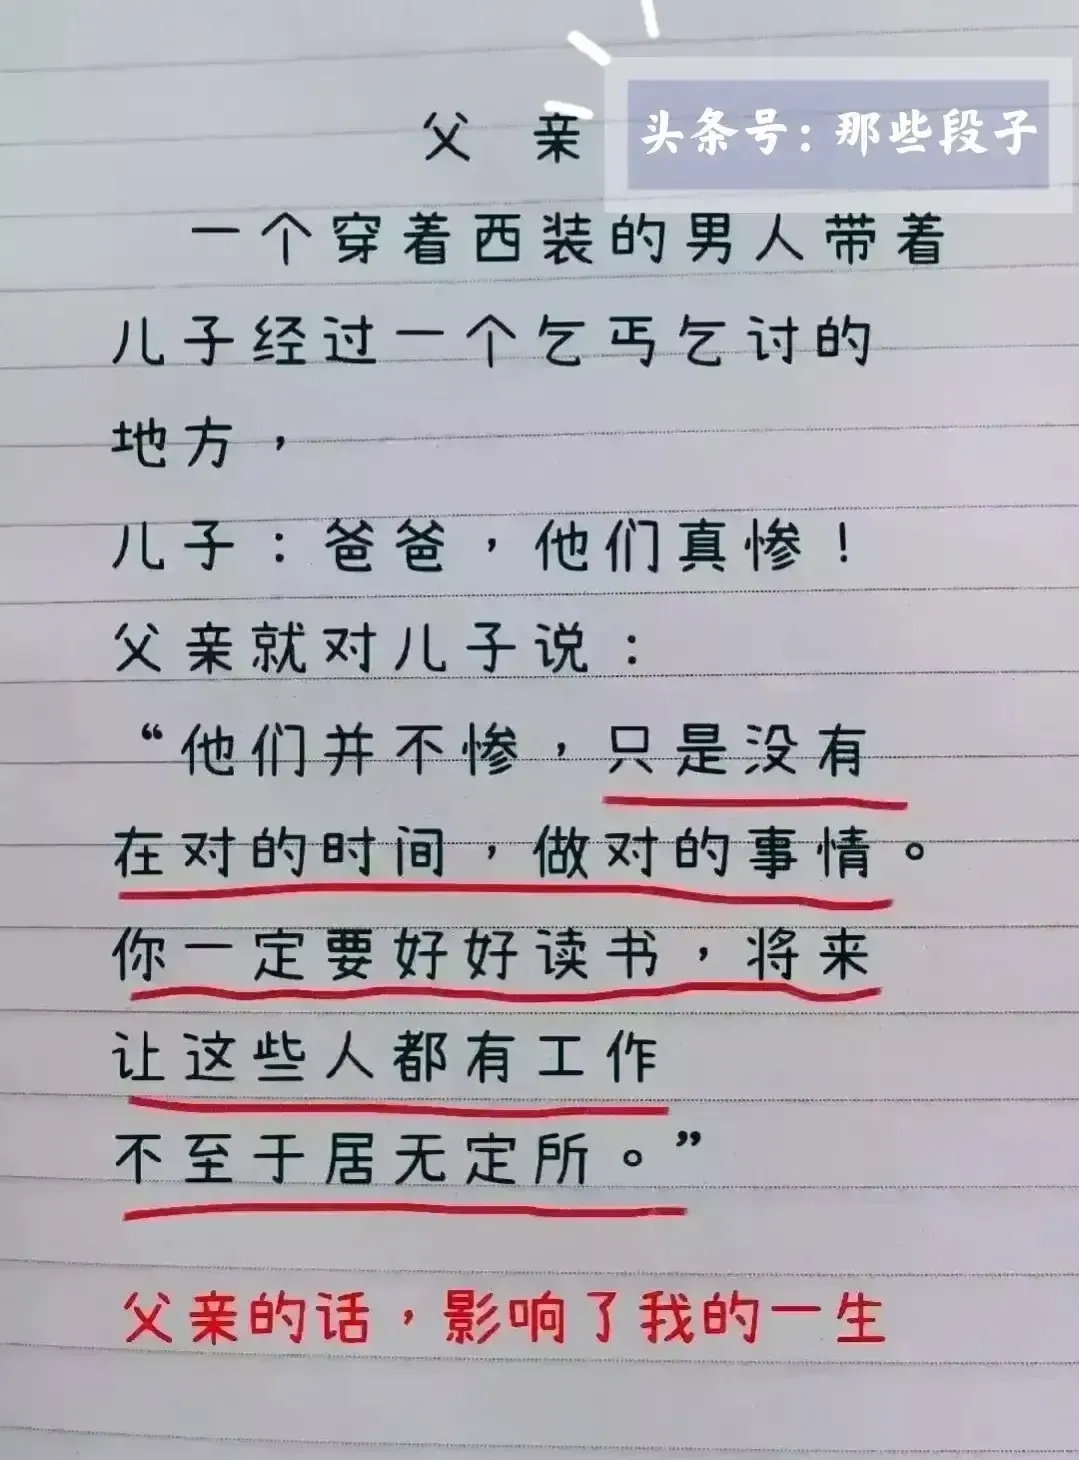 父 亲
头条号：那些段子
一个穿着西装的男人带着
儿子经过一个乞丐乞讨的
地方，
儿子：爸爸，他们真惨！
父亲就对儿子说：
“他们并不惨，只是没有
在对的时间，做对的事情。
你一定要好好读书，将来
让这些人都有工作
不至于居无定所。”
父亲的话，影响了我的一生